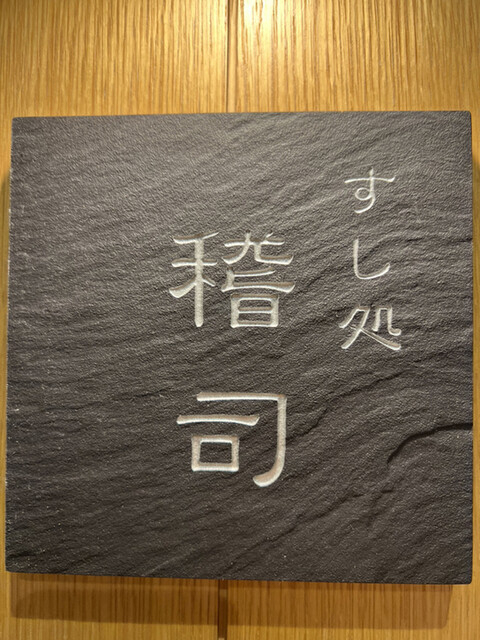 すし処
稽司